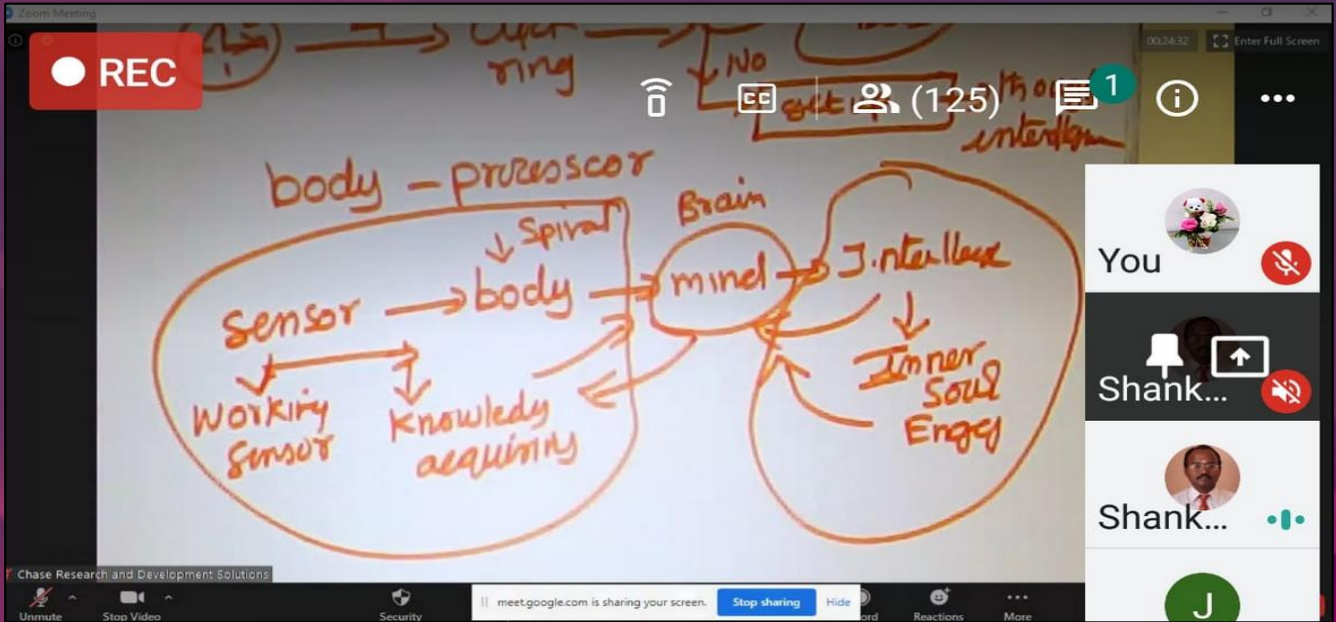 Zoom Meeting
REC
00:24:32 Enter Full Screen
ring
No
CC
(125)
1
body - processor
Brain
Spiral
Sensor
body
mind
Inner
Soul
Working
Sensor
Knowledy
acquiring
You
Shank...
Shank...
J
Chase Research and Development Solutions
Unmute
Stop Video
Security
meet.google.com is sharing your screen.
Stop sharing
Hide
ord
Reactions
More